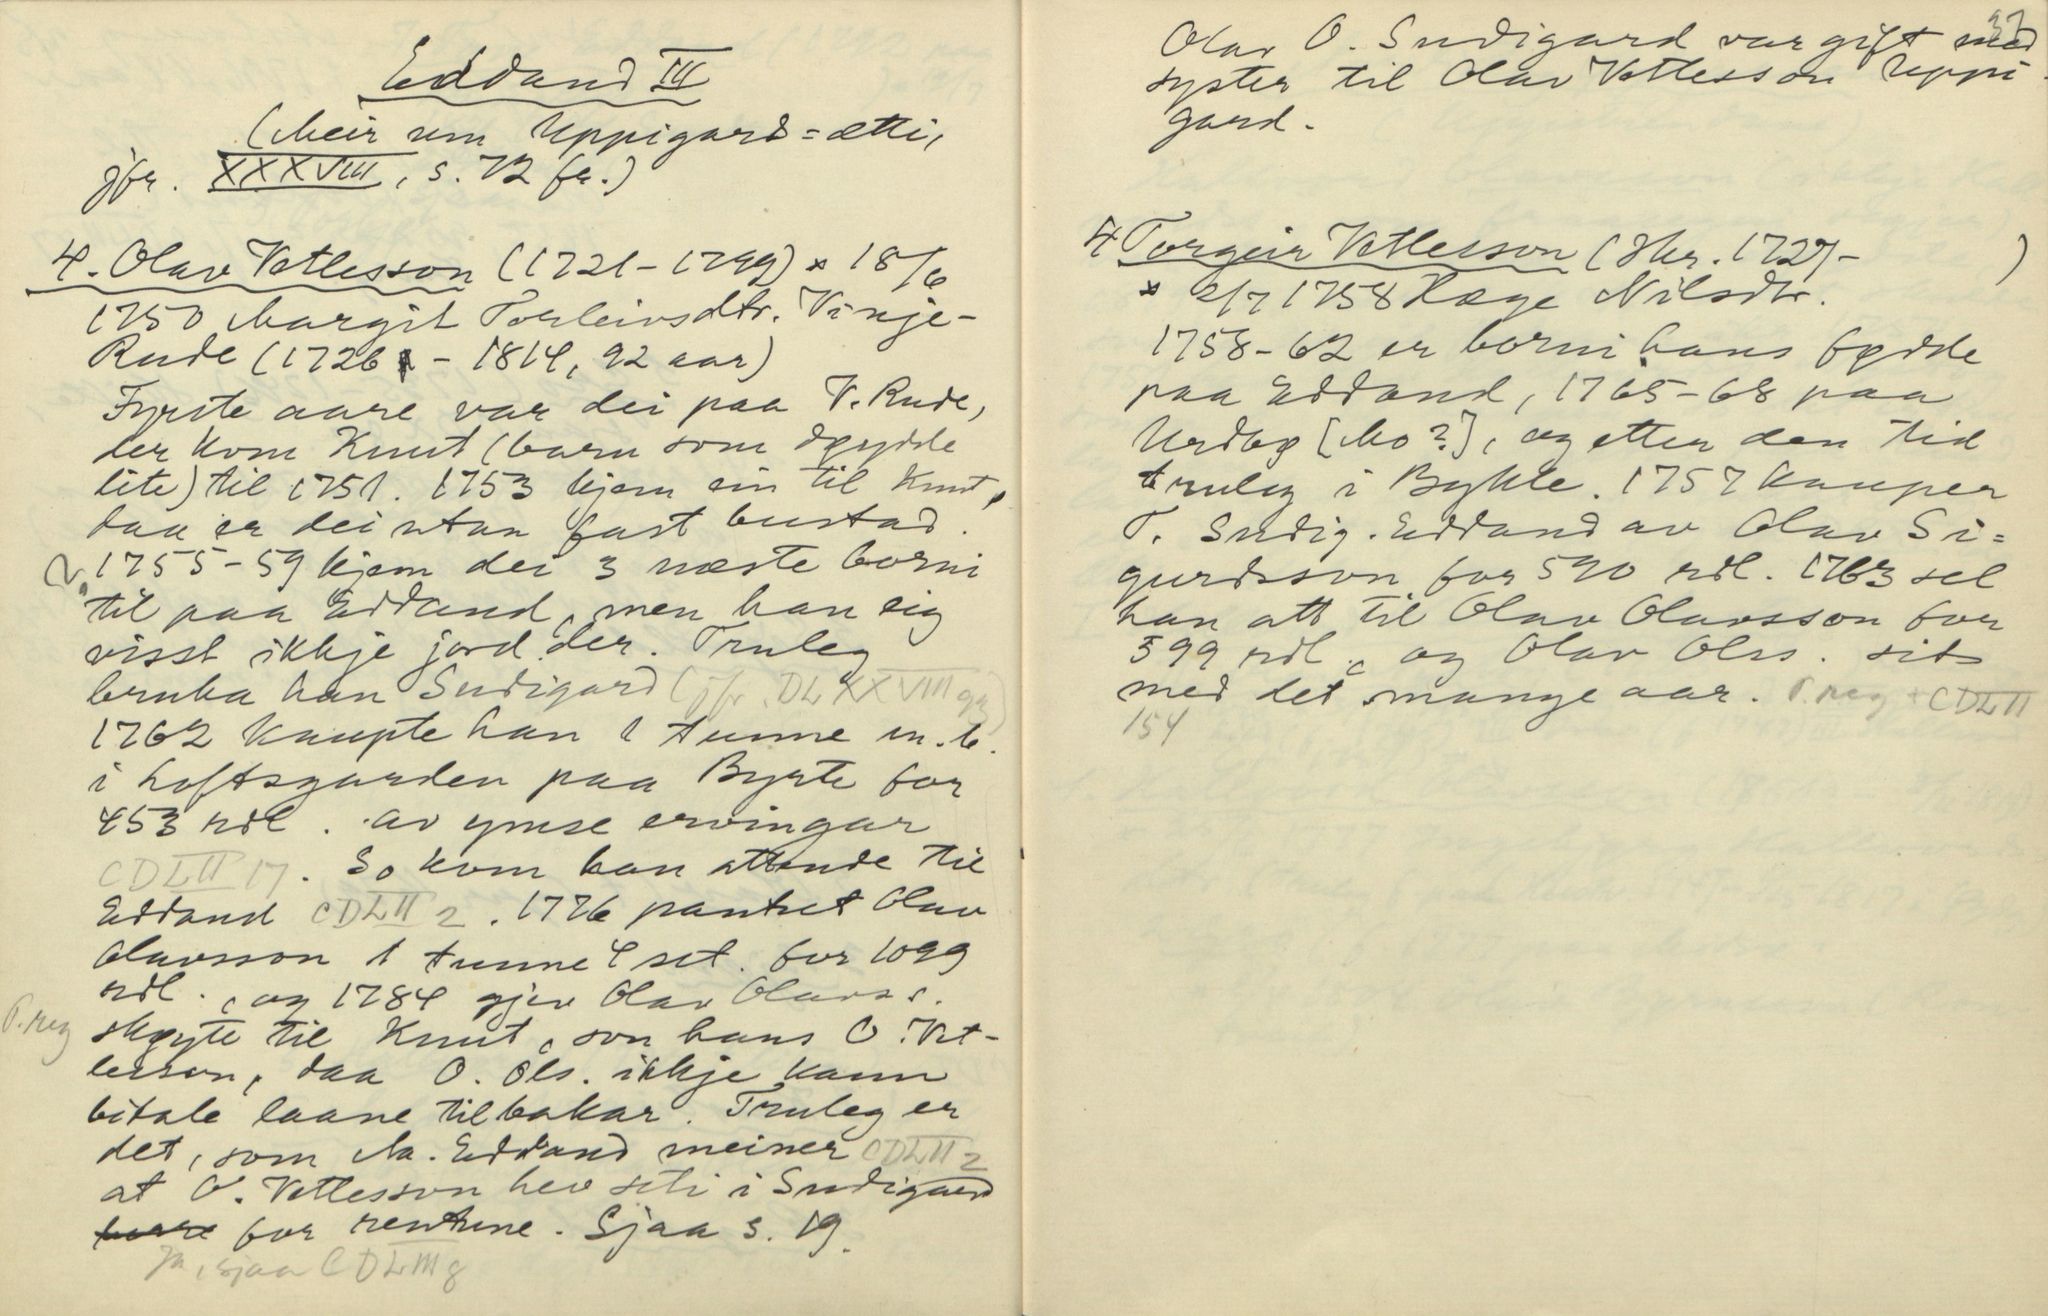 Eddand III
(Meir um Uppigard=ætti,
jfr. XXXVIII, s. 72 fr.)
4. Olav Vetlesson (1721-1799) × 18/6
1750 Margit Torleivsdtr. Vinje-
Rude (1726 - 1814, 92 aar)
Fyrste aare var dei paa V. Rude,
der kom Knut (barn som døydde
lite) til 1751. 1753 kjem ein til Knut,
daa er dei utan fast bustad.
? 1755-59 kjem dei 3 næste borni
til paa Eddand, men han eig
visst ikkje jord der. Truleg
bruka han Sudigard (jfr. DLXXVIII 92)
1762 kaupte han 1 tunne m.b.
i Loftsgarden paa Byrte for
453 rdl. av ymse ervingar
CDLII 17. So kom han attende til
Eddand CDLII 2. 1776 pantset Olav
Olavsson 1 tunne 4 set. for 1099
rdl., og 1784 gjev Olav Olavss.
P.reg skøyte til Knut, son hans O. Vet-
lesson, daa O. Ols. ikkje kann
bitale laane tilbakar. Truleg er
det, som M. Eddand meiner CDLII 2
at O. Vetlesson hev seti i Sudigard
for rentune. Sjaa s. 19.
Ja, sjaa CDLIII 8
37
Olav O. Sudigard var gift med
syster til Olav Vetlesson Uppi-
gard.
4 Torgeir Vetlesson (Skr. 1727- )
× 2/7 1758 Hæge Nilsdtr.
1758-62 er borni hans fødde
paa Eddand, 1765-68 paa
Urdbø [Mo?], og etter den tid
truleg i Bykle. 1757 kauper
T. Sudig. Eddand av Olav Si=
gurdsson for 590 rdl. 1763 sel
han att til Olav Olavsson for
599 rdl., og Olav Olss. sit
med det mange aar. P.reg + CDLII
154